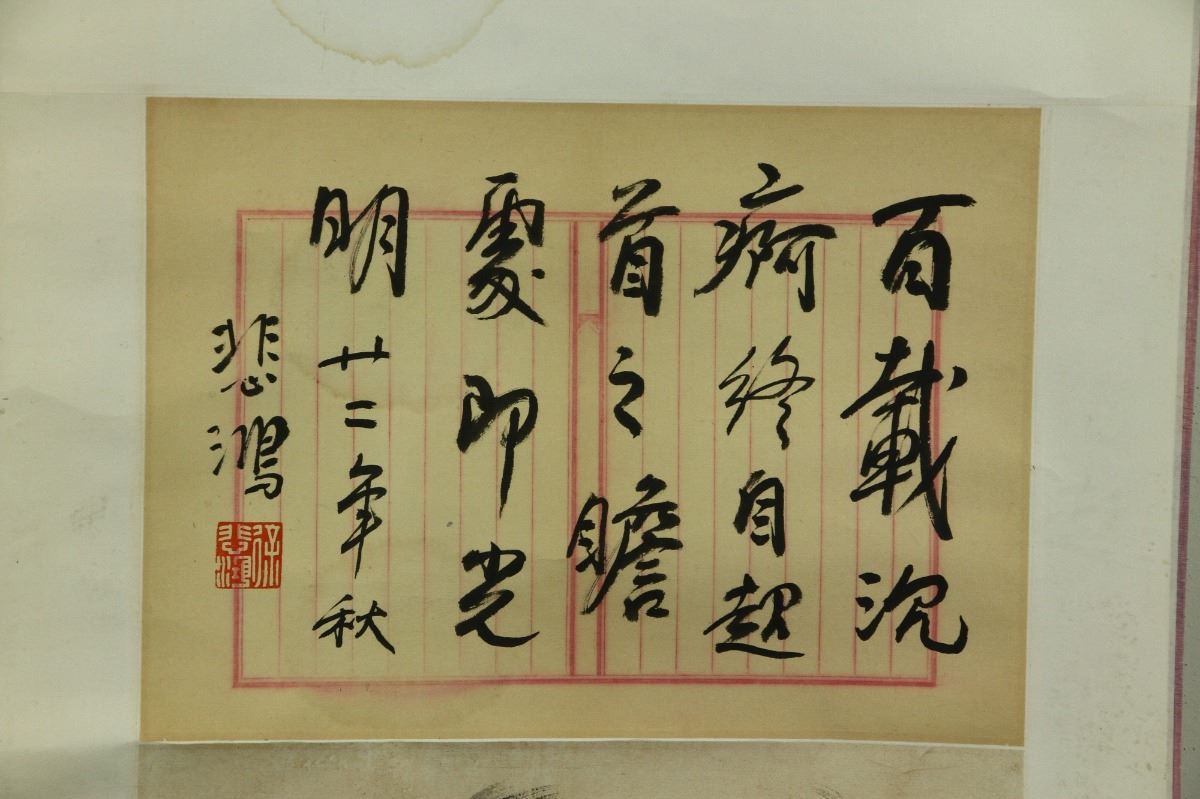 百載沉
痾終自起
首之瞻
處即光
明 廿二年秋
悲鴻
徐悲鴻